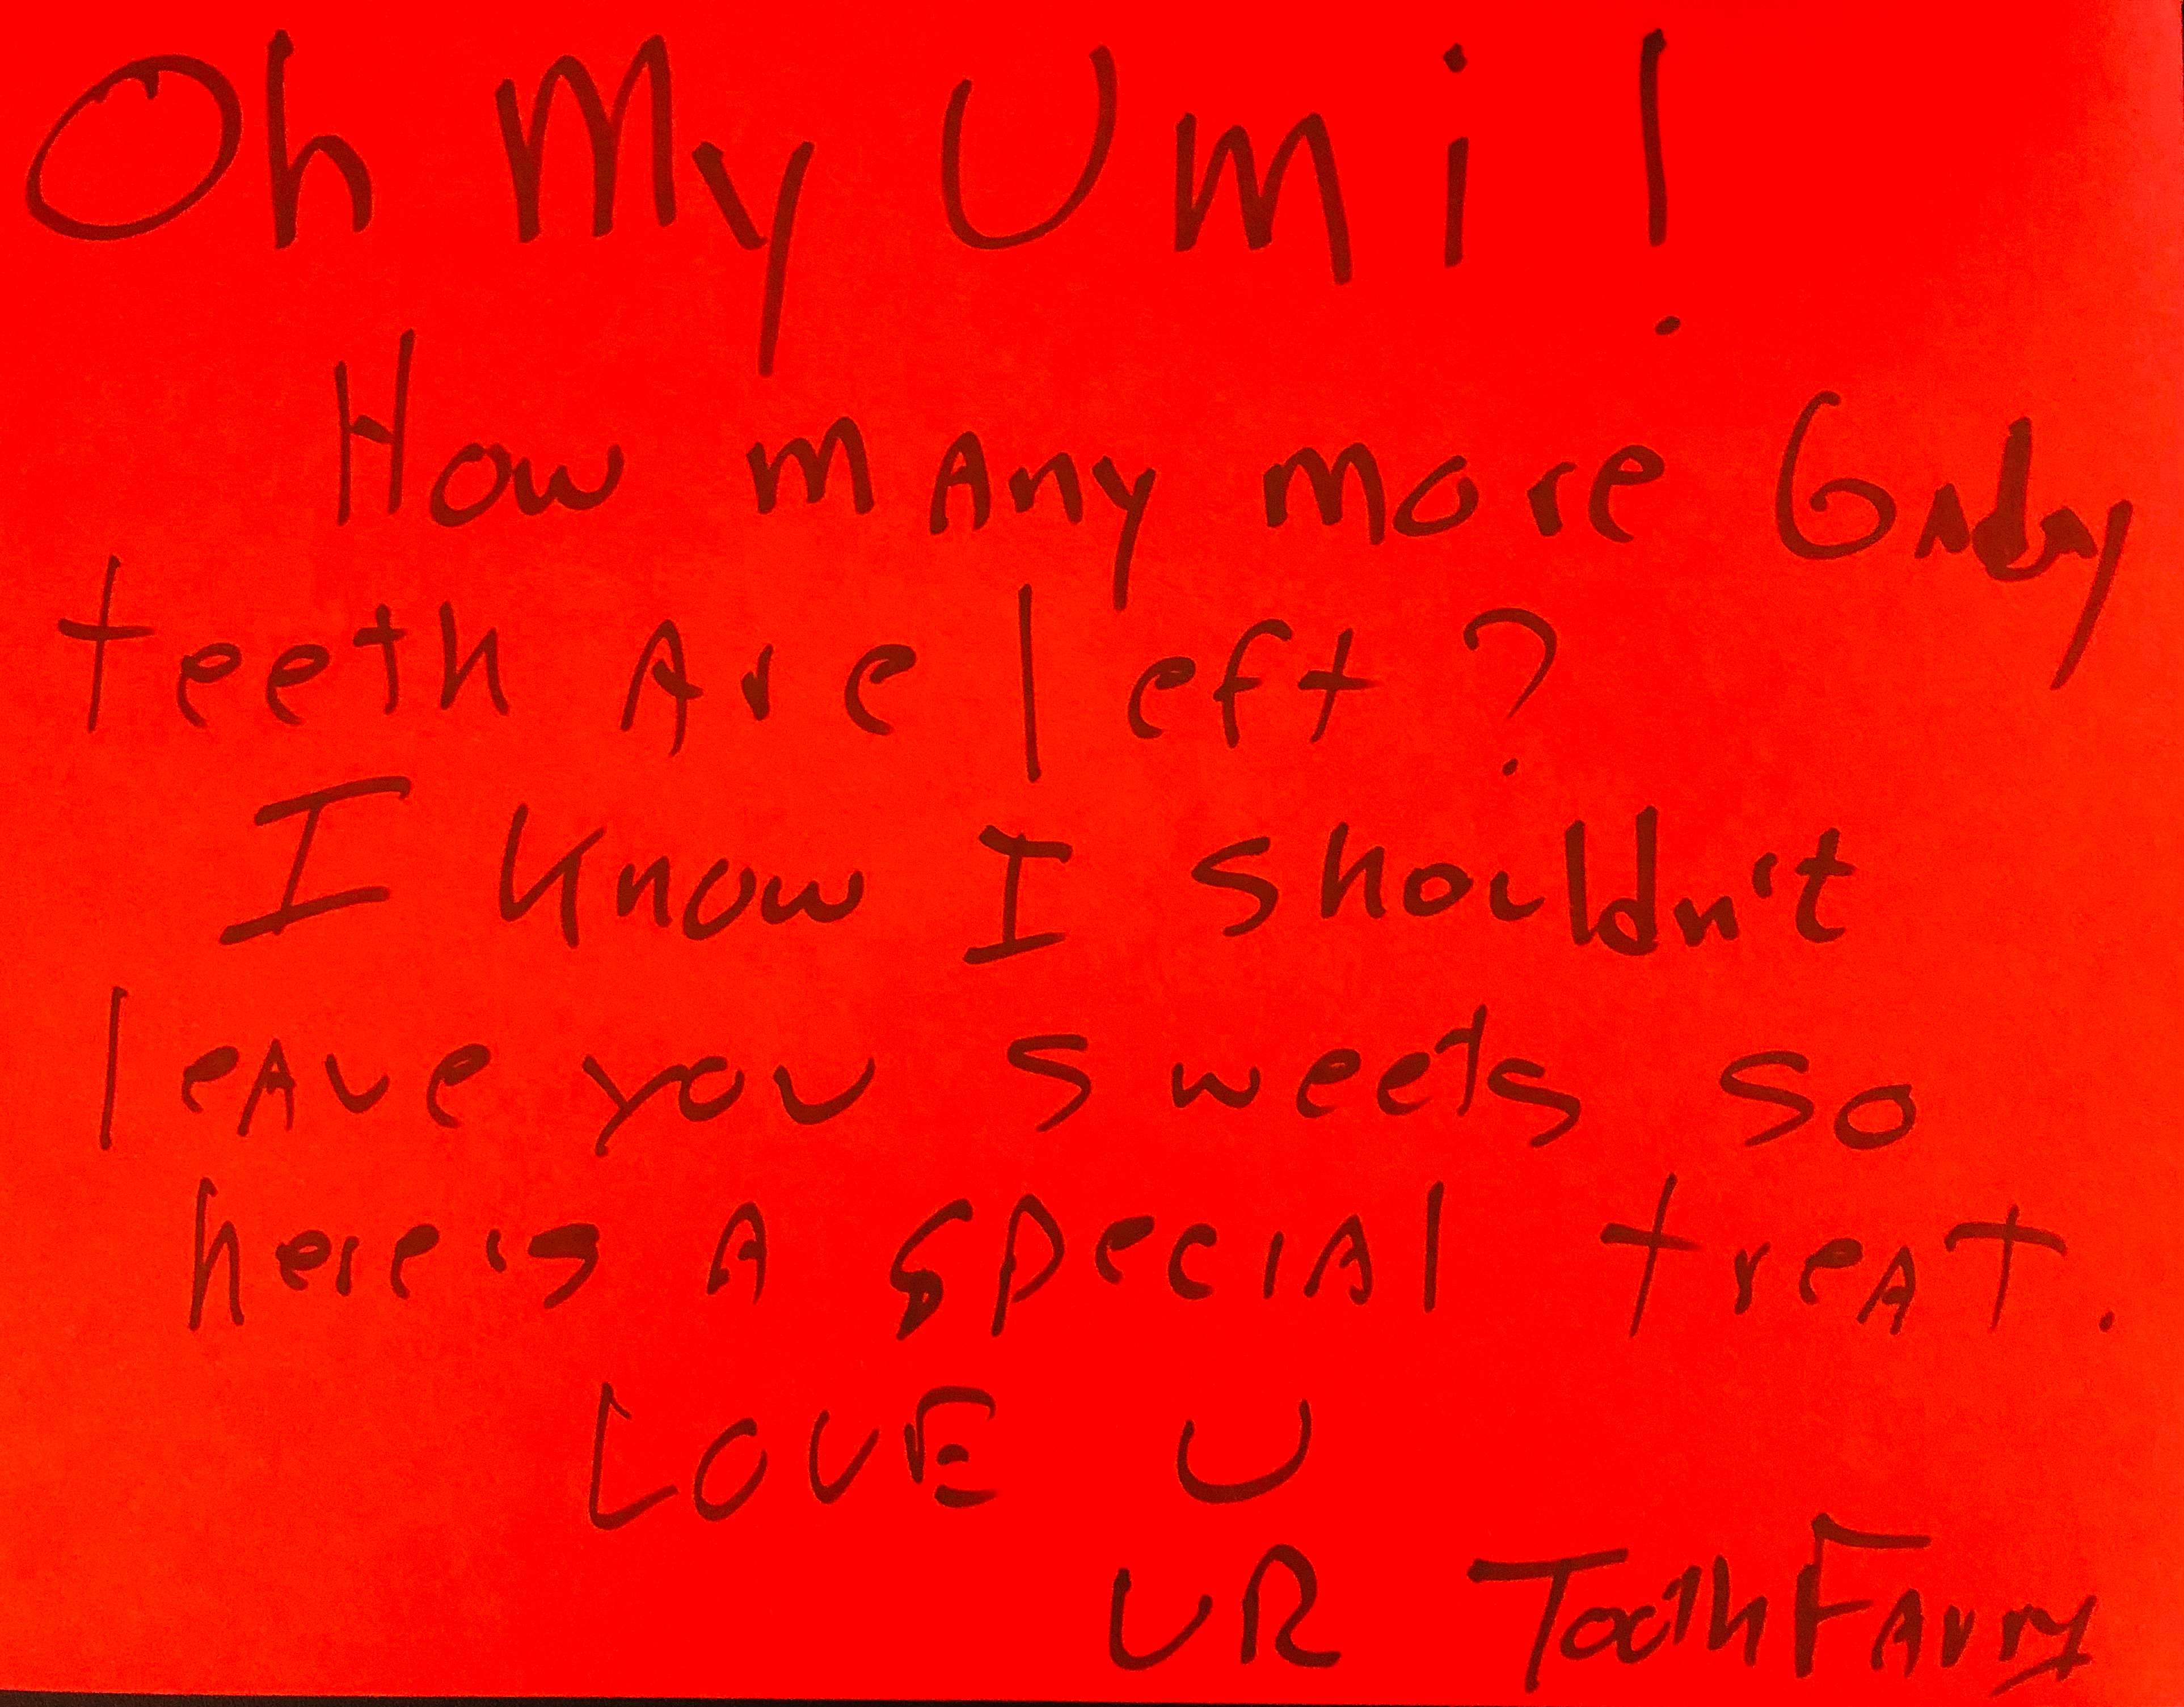 Oh My Umi!
How many more baby
teeth are left?
I know I shouldn't
leave you sweets so
here's a special treat.
LOVE U
UR Tooth Fairy